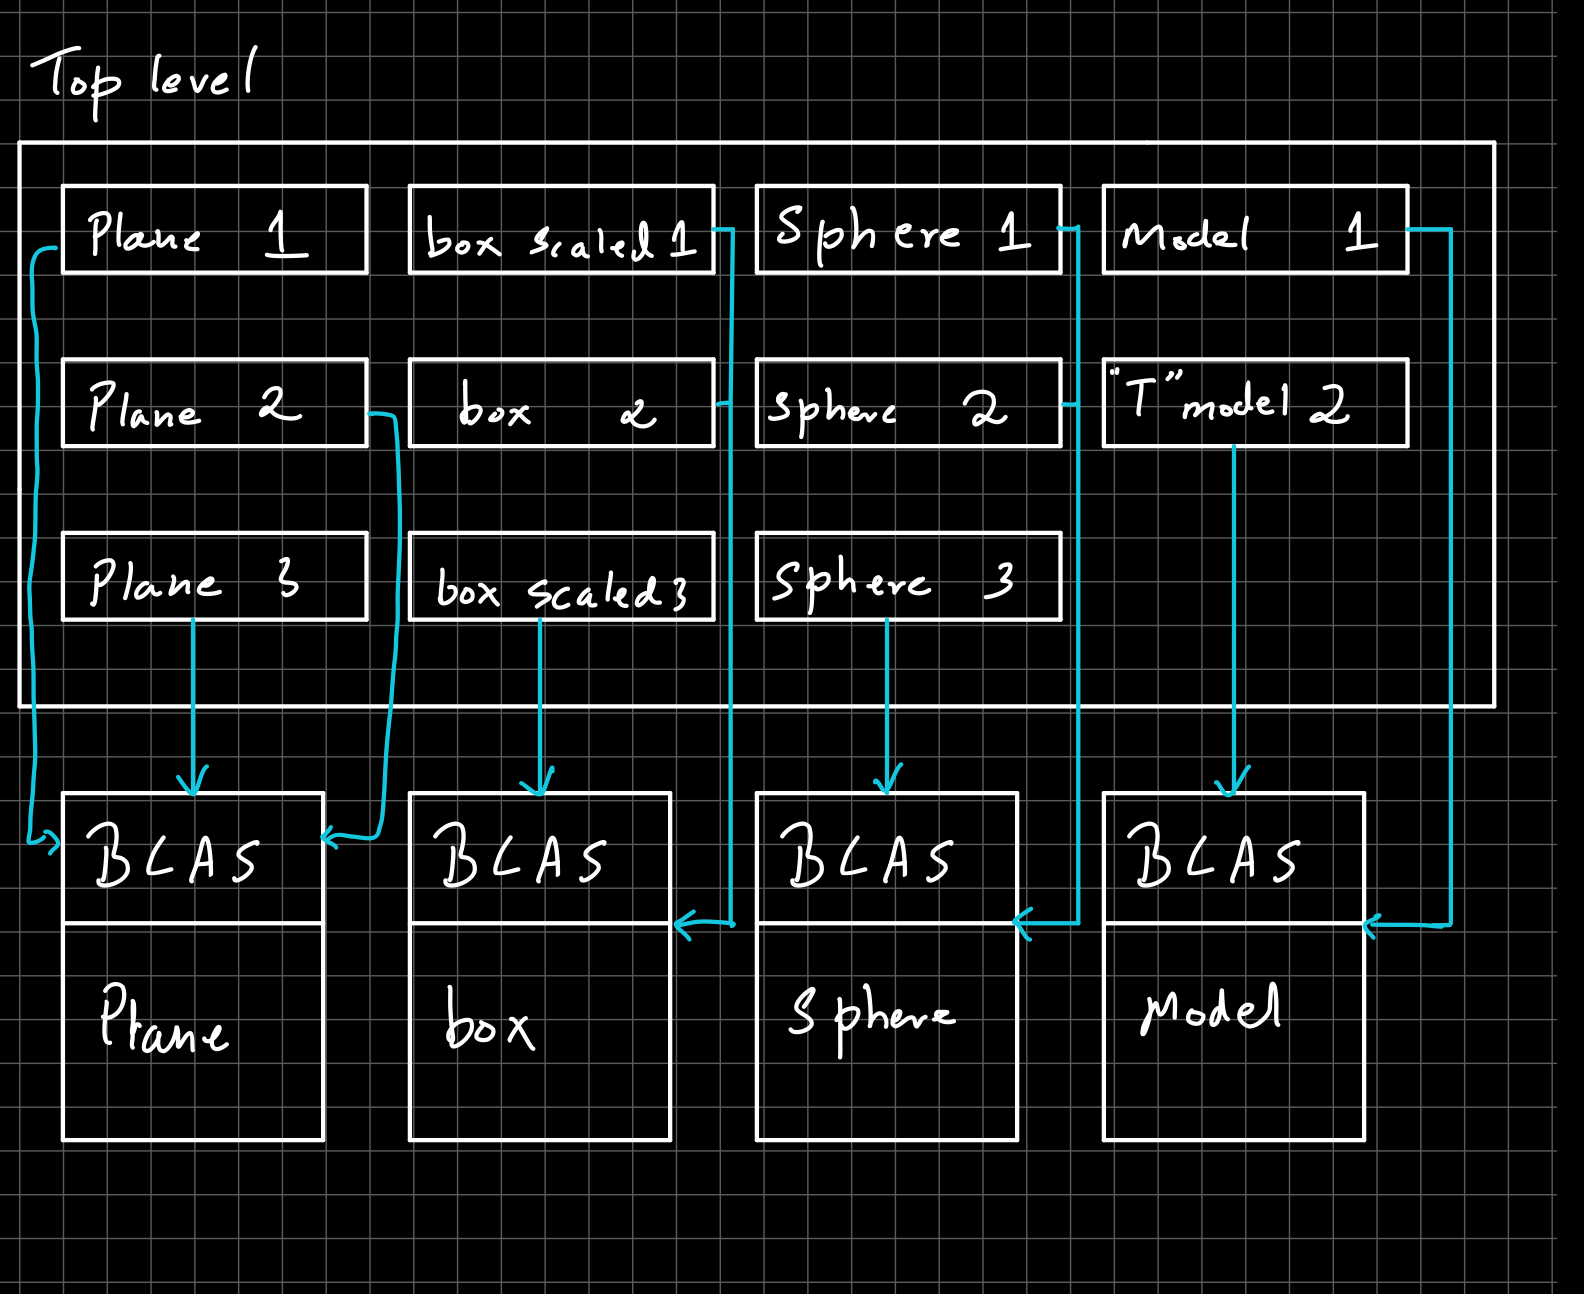 Top level
Plane 1
box scaled 1
Sphere 1
Model 1
Plane 2
box 2
Sphere 2
"T" model 2
Plane 3
box scaled 3
Sphere 3
BLAS
BLAS
BLAS
BLAS
Plane
box
Sphere
Model